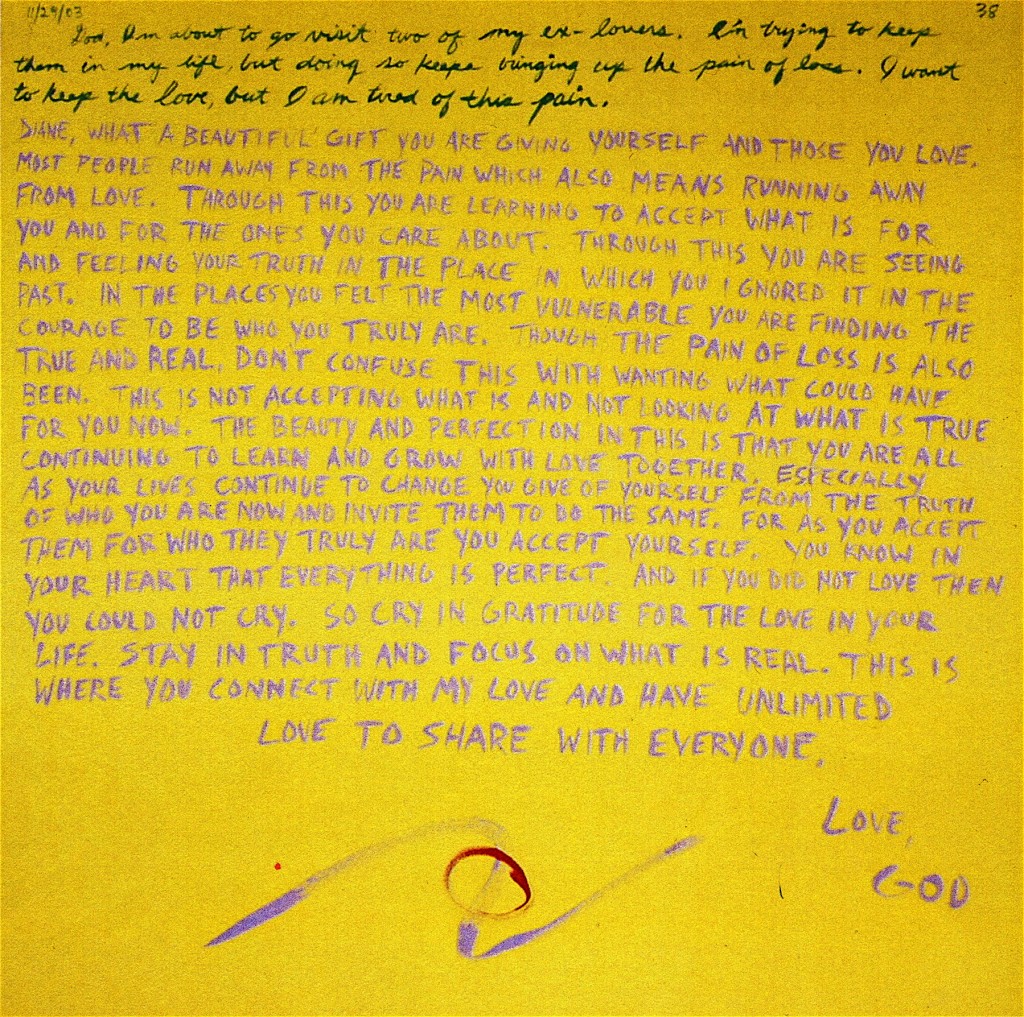 11/29/03 38
God, I'm about to go visit two of my ex-lovers. I'm trying to keep
them in my life, but doing so keeps bringing up the pain of loss. I want
to keep the love, but I am tired of this pain.
DIANE, WHAT A BEAUTIFUL GIFT YOU ARE GIVING YOURSELF AND THOSE YOU LOVE.
MOST PEOPLE RUN AWAY FROM THE PAIN WHICH ALSO MEANS RUNNING AWAY
FROM LOVE. THROUGH THIS YOU ARE LEARNING TO ACCEPT WHAT IS FOR
YOU AND FOR THE ONES YOU CARE ABOUT. THROUGH THIS YOU ARE SEEING
AND FEELING YOUR TRUTH IN THE PLACE IN WHICH YOU IGNORED IT IN THE
PAST. IN THE PLACES YOU FELT THE MOST VULNERABLE YOU ARE FINDING THE
COURAGE TO BE WHO YOU TRULY ARE. THOUGH THE PAIN OF LOSS IS ALSO
TRUE AND REAL, DON'T CONFUSE THIS WITH WANTING WHAT COULD HAVE
BEEN. THIS IS NOT ACCEPTING WHAT IS AND NOT LOOKING AT WHAT IS TRUE
FOR YOU NOW. THE BEAUTY AND PERFECTION IN THIS IS THAT YOU ARE ALL
CONTINUING TO LEARN AND GROW WITH LOVE TOGETHER, ESPECIALLY
AS YOUR LIVES CONTINUE TO CHANGE YOU GIVE OF YOURSELF FROM THE TRUTH
OF WHO YOU ARE NOW AND INVITE THEM TO DO THE SAME. FOR AS YOU ACCEPT
THEM FOR WHO THEY TRULY ARE YOU ACCEPT YOURSELF. YOU KNOW IN
YOUR HEART THAT EVERYTHING IS PERFECT. AND IF YOU DID NOT LOVE THEN
YOU COULD NOT CRY. SO CRY IN GRATITUDE FOR THE LOVE IN YOUR
LIFE. STAY IN TRUTH AND FOCUS ON WHAT IS REAL. THIS IS
WHERE YOU CONNECT WITH MY LOVE AND HAVE UNLIMITED
LOVE TO SHARE WITH EVERYONE.
LOVE,
GOD